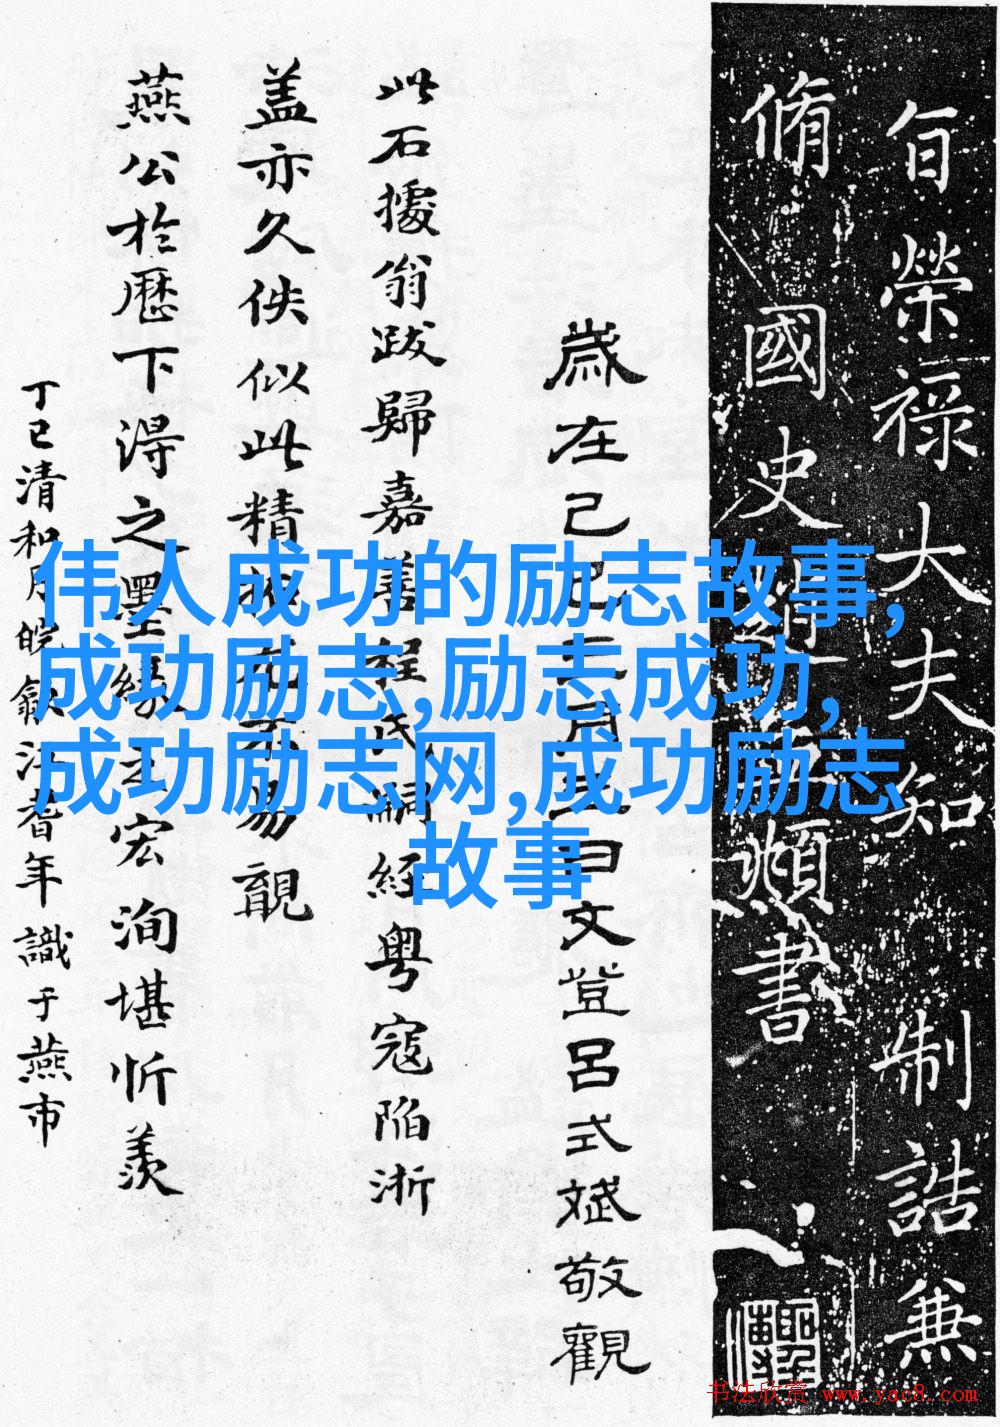 旨榮祿大夫知 制誥兼
脩國史 頫書
歲在己巳三月 日文登呂式斌敬觀
此石據翁跋歸嘉善程氏嗣經粤寇陷浙
盖亦久佚似此精 易覯
燕公於歷下淂之墨緣 宏洵堪忻羨
丁巳清和月皖歙江耆年識于燕市
伟人成功的励志故事,
成功励志,励志成功,
成功励志网,成功励志
故事
书法欣赏 www.yac8.com